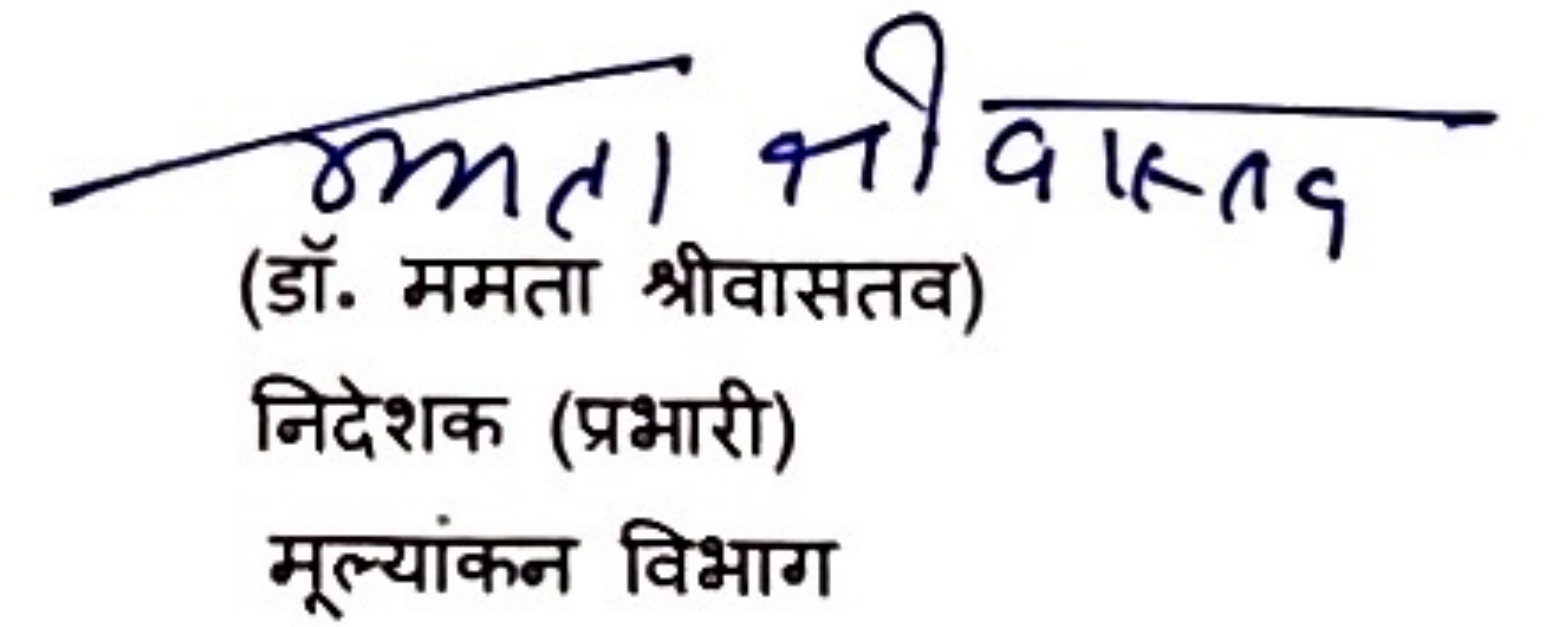 ममता श्रीवास्तव
(डॉ. ममता श्रीवासतव)
निदेशक (प्रभारी)
मूल्यांकन विभाग